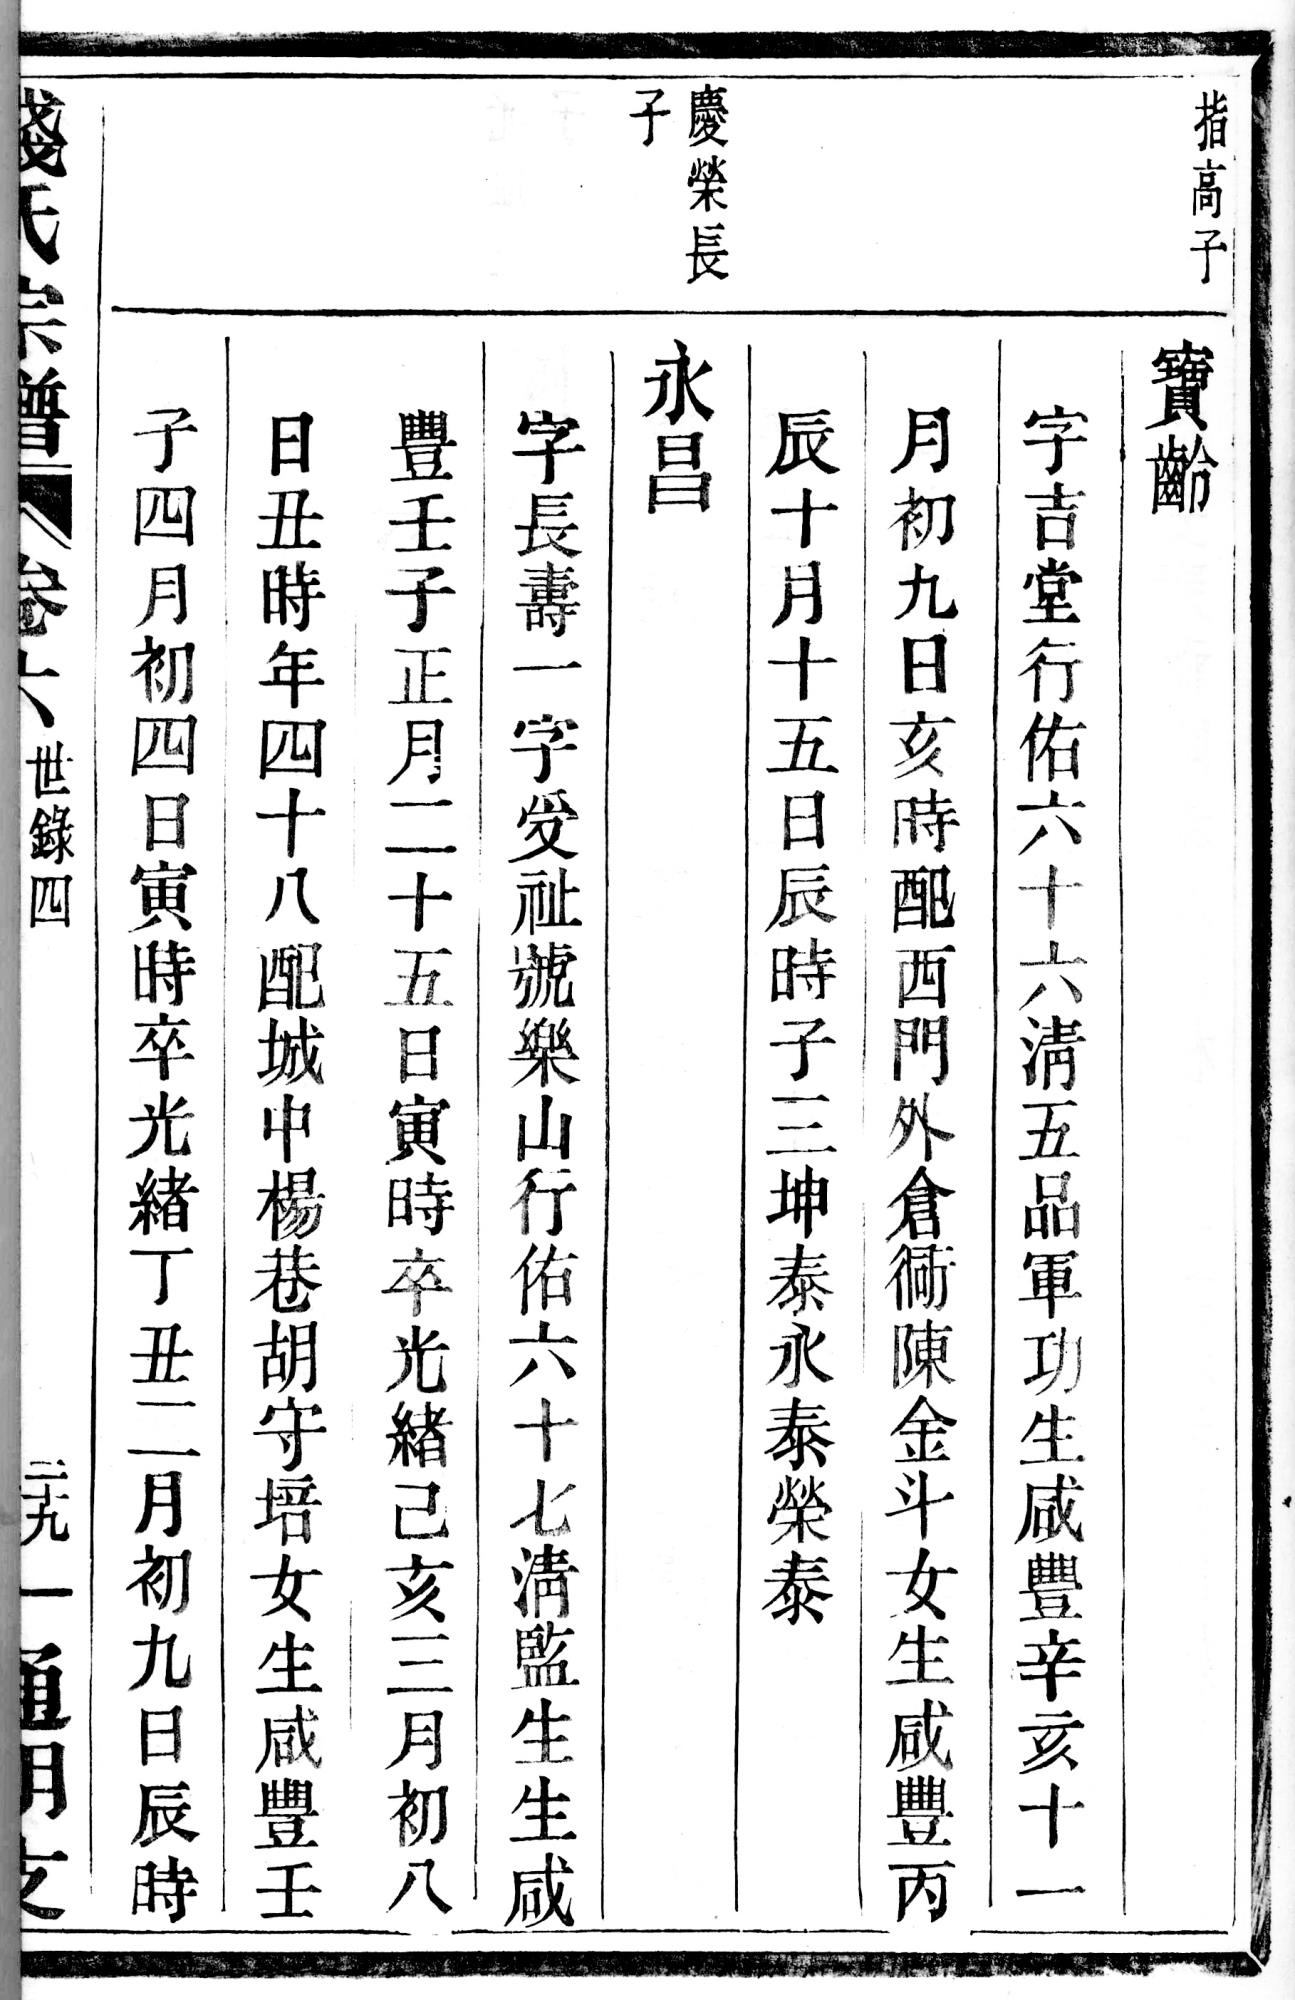 指高子
寶齡
字吉堂行佑六十六淸五品軍功生咸豐辛亥十一
月初九日亥時配西門外倉衕陳金斗女生咸豐丙
辰十月十五日辰時子三坤泰永泰榮泰
慶榮長
子
永昌
字長壽一字受祉號樂山行佑六十七淸監生生咸
豐壬子正月二十五日寅時卒光緒己亥三月初八
日丑時年四十八配城中楊巷胡守培女生咸豐壬
子四月初四日寅時卒光緒丁丑二月初九日辰時
錢氏宗譜 卷六 世錄四 二十九 通明支